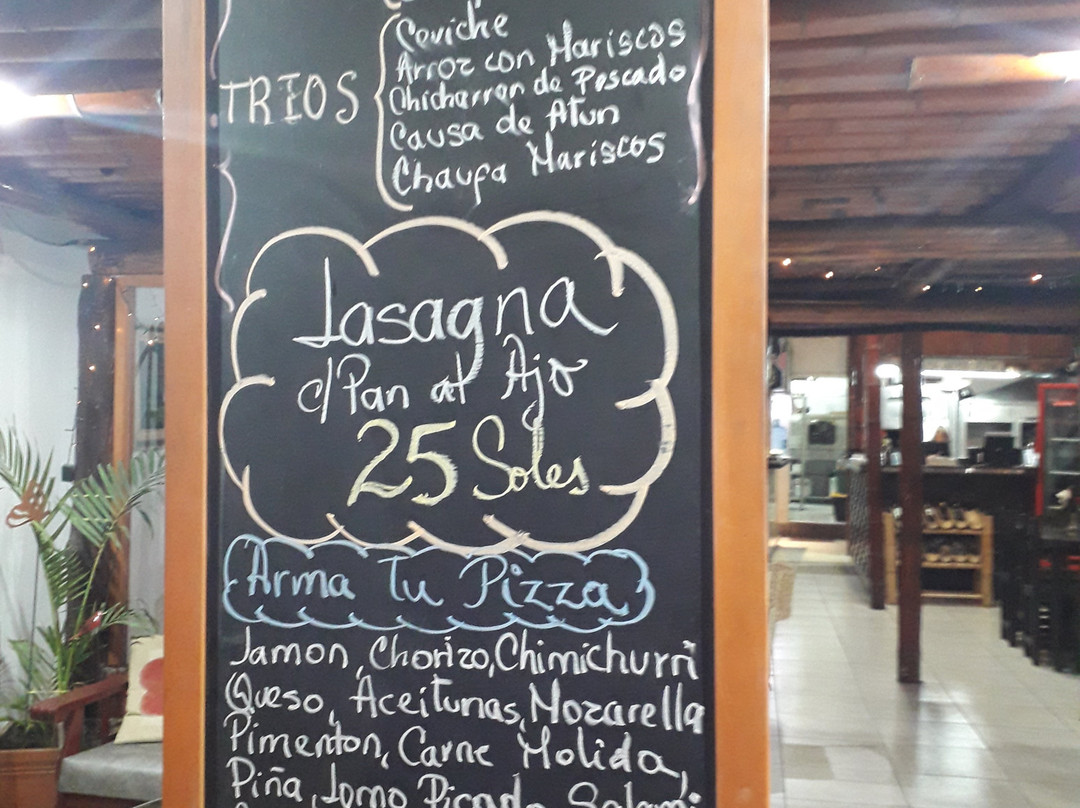 Ceviche
Arroz con Mariscos
TRIOS
Chicharron de Pescado
Causa de Atun
Chaufa Mariscos
Lasagna
c/Pan al Ajo
25 Soles
Arma Tu Pizza
Jamon, Chorizo, Chimichurri
Queso, Aceitunas, Mozarella
Pimenton, Carne Molida,
Piña, Lomo Picado, Salami